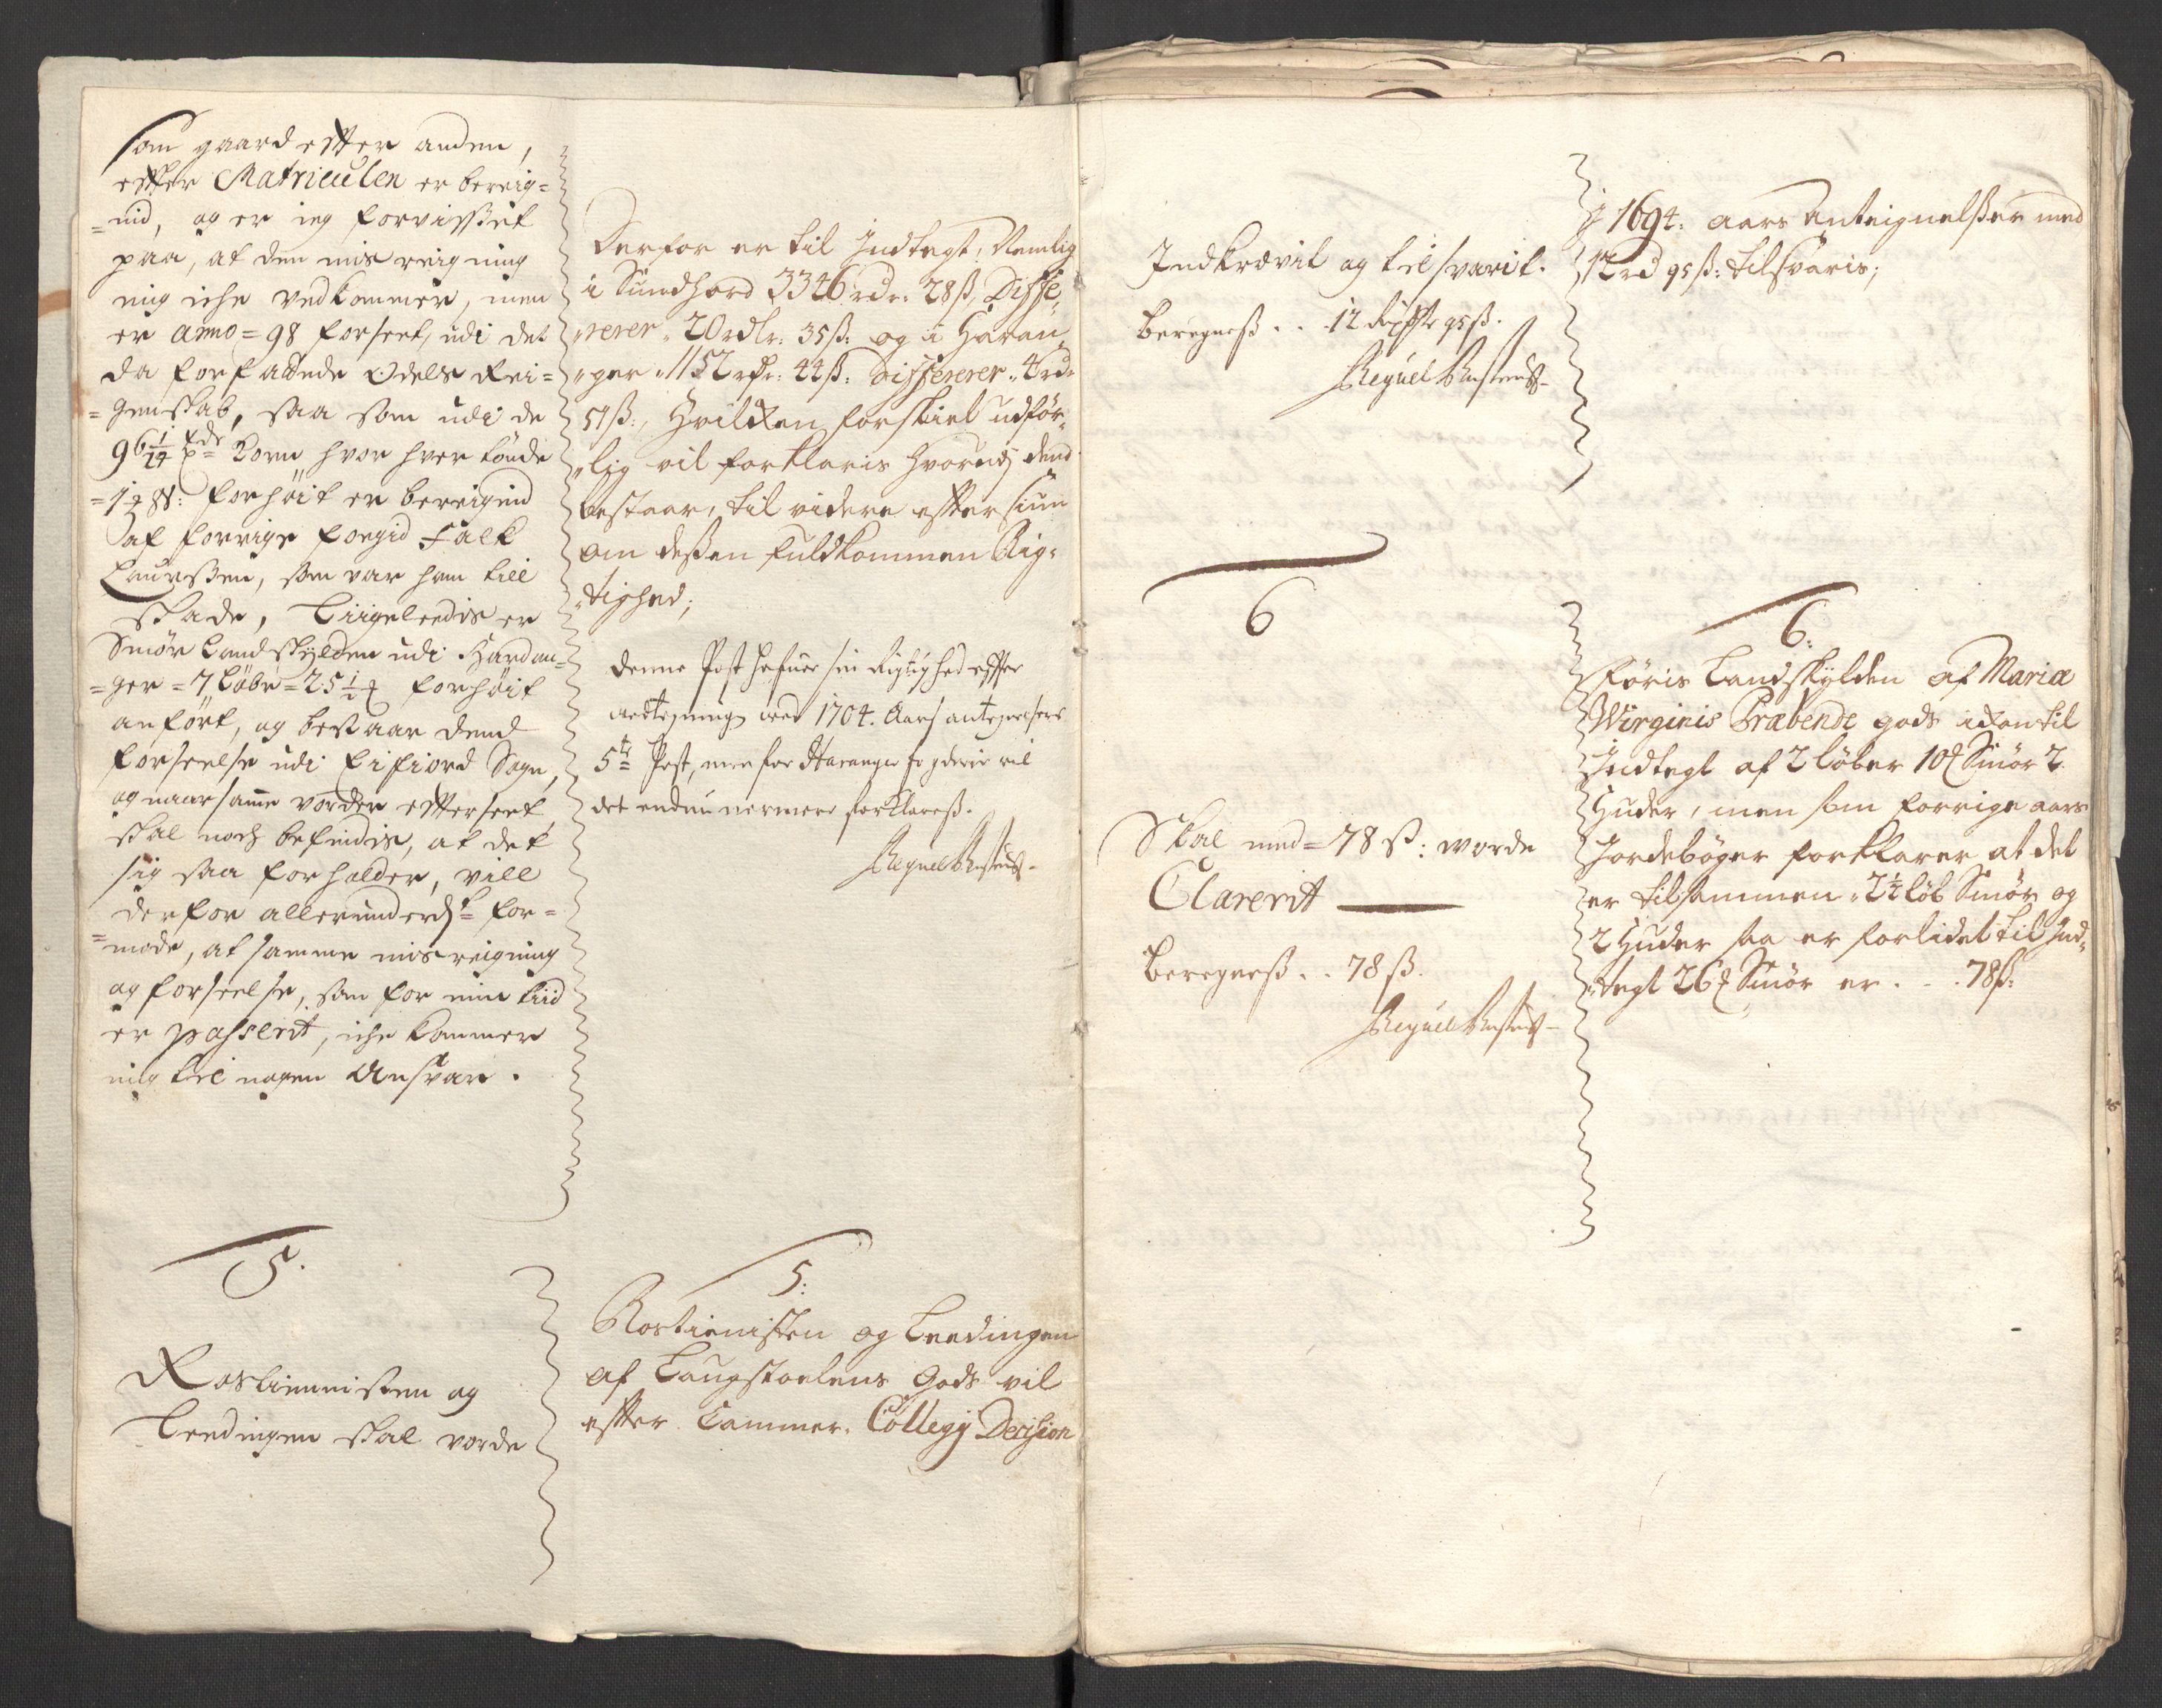 som gaard efter anden,
efter Matriculen er bereig=
=nid, og er ieg forvisset
paa, at den misreigning
mig iche vedkommer, men
er anno = 98 forseet, udi det
da forfattede Odels Rei=
=genskab, saa som udi de
96 1/24 Korn, hvor hver tønde
forhøit er bereignid
af forrige fogid Falk
Laurssen, som var ham till
skade, Liigeleedis er
Smør Landskylden udi Hardan=
=ger = 7 Løber = 25 1/2 forhøit
anført, og bestaar dend
forseelse udi Eifiord Sogn,
og naar samme vorder efterseet,
skal noch befindis, at det
sig saa forholder, vill
derfor allerunderd: for=
=mode, at samme misreigning
og forseelse, som for min tiid
er passerit, iche kommer
mig til nogen Ansvar.
5.
Rostienisten og
Leedingen skal vorde
Derfor er til Indtegt, Nemlig
i Sundhord 3346 rdr: 28 ß, Diffe,,
,,rerer ,, 20 rdlr: 35 ß: og i Haran,,
,,ger ,, 1152 rdr: 44 ß: Differerer ,, 4 rdr
51 ß:, Hvilken forskiel udfør,,
,,lig vil forklaris hvorudj dend
bestaar, til videre eftersiun
om dessen fuldkommen Rig,,
,,tighed;
Denne Post hafuer sin Rigtighed efter
ved 1704. Aars antegnelsers
5te Post, men for Haranger fogderie vil
det endnu nermere forklareß.
5:
Rostienisten og Leedingen
af Laugstoelens Gods vil
efter Cammer. Collegij Decision
Indkrævit og tilsvarit.
beregneß . . . 12 95 ß.
6
Skal med = 78 ß: vorde
Clarerit
beregneß . . 78 ß.
1694. aars Anteignelsser med
12 rd 95 ß: tilsvaris;
6:
føris Landskylden af Mariæ
Wirginis Præbende gods ikon til
Indtegt af 2 løber 10 Smør 2
Huder, men som forrige aars
Jordebøger forklarer at det
er tilsammen ,, 2 1/2 løb Smør og
2 Huder saa er forlidet til Ind,,
,,tegt 26 Smør er . . . 78 ß: